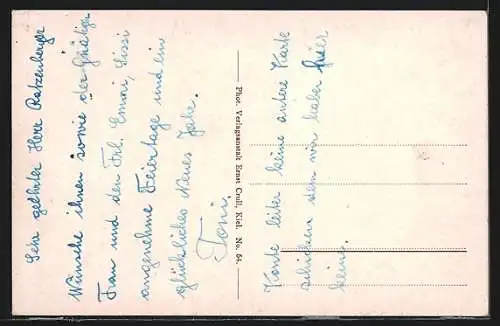 Sehr geehrter Herr Ratzenberger
Wünsche ihnen sowie der Gnädigen
Frau und den Frl. Emmi, Sissi
angenehme Feiertage und ein
glückliches Neues Jahr.
Toni.
Phot. Verlagsanstalt Ernst Crull, Kiel. No. 64.
Konte leider keine andere Karte
schicken dem wir haben hier
keine.